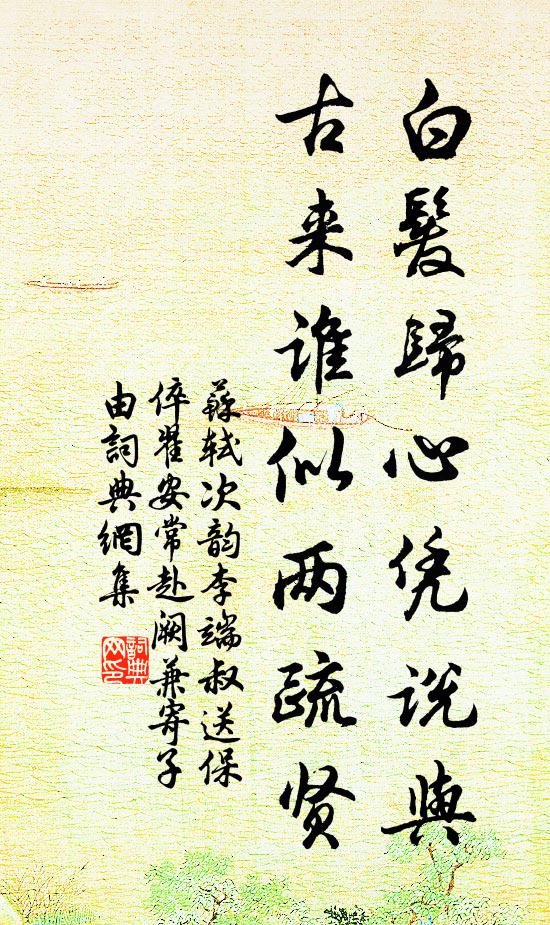 白髮歸心凭説與
古来誰似两疏贤
蘇轼次韵李端叔送保
倅翟安常赴阙兼寄子
由詞典網集
詞典
网印